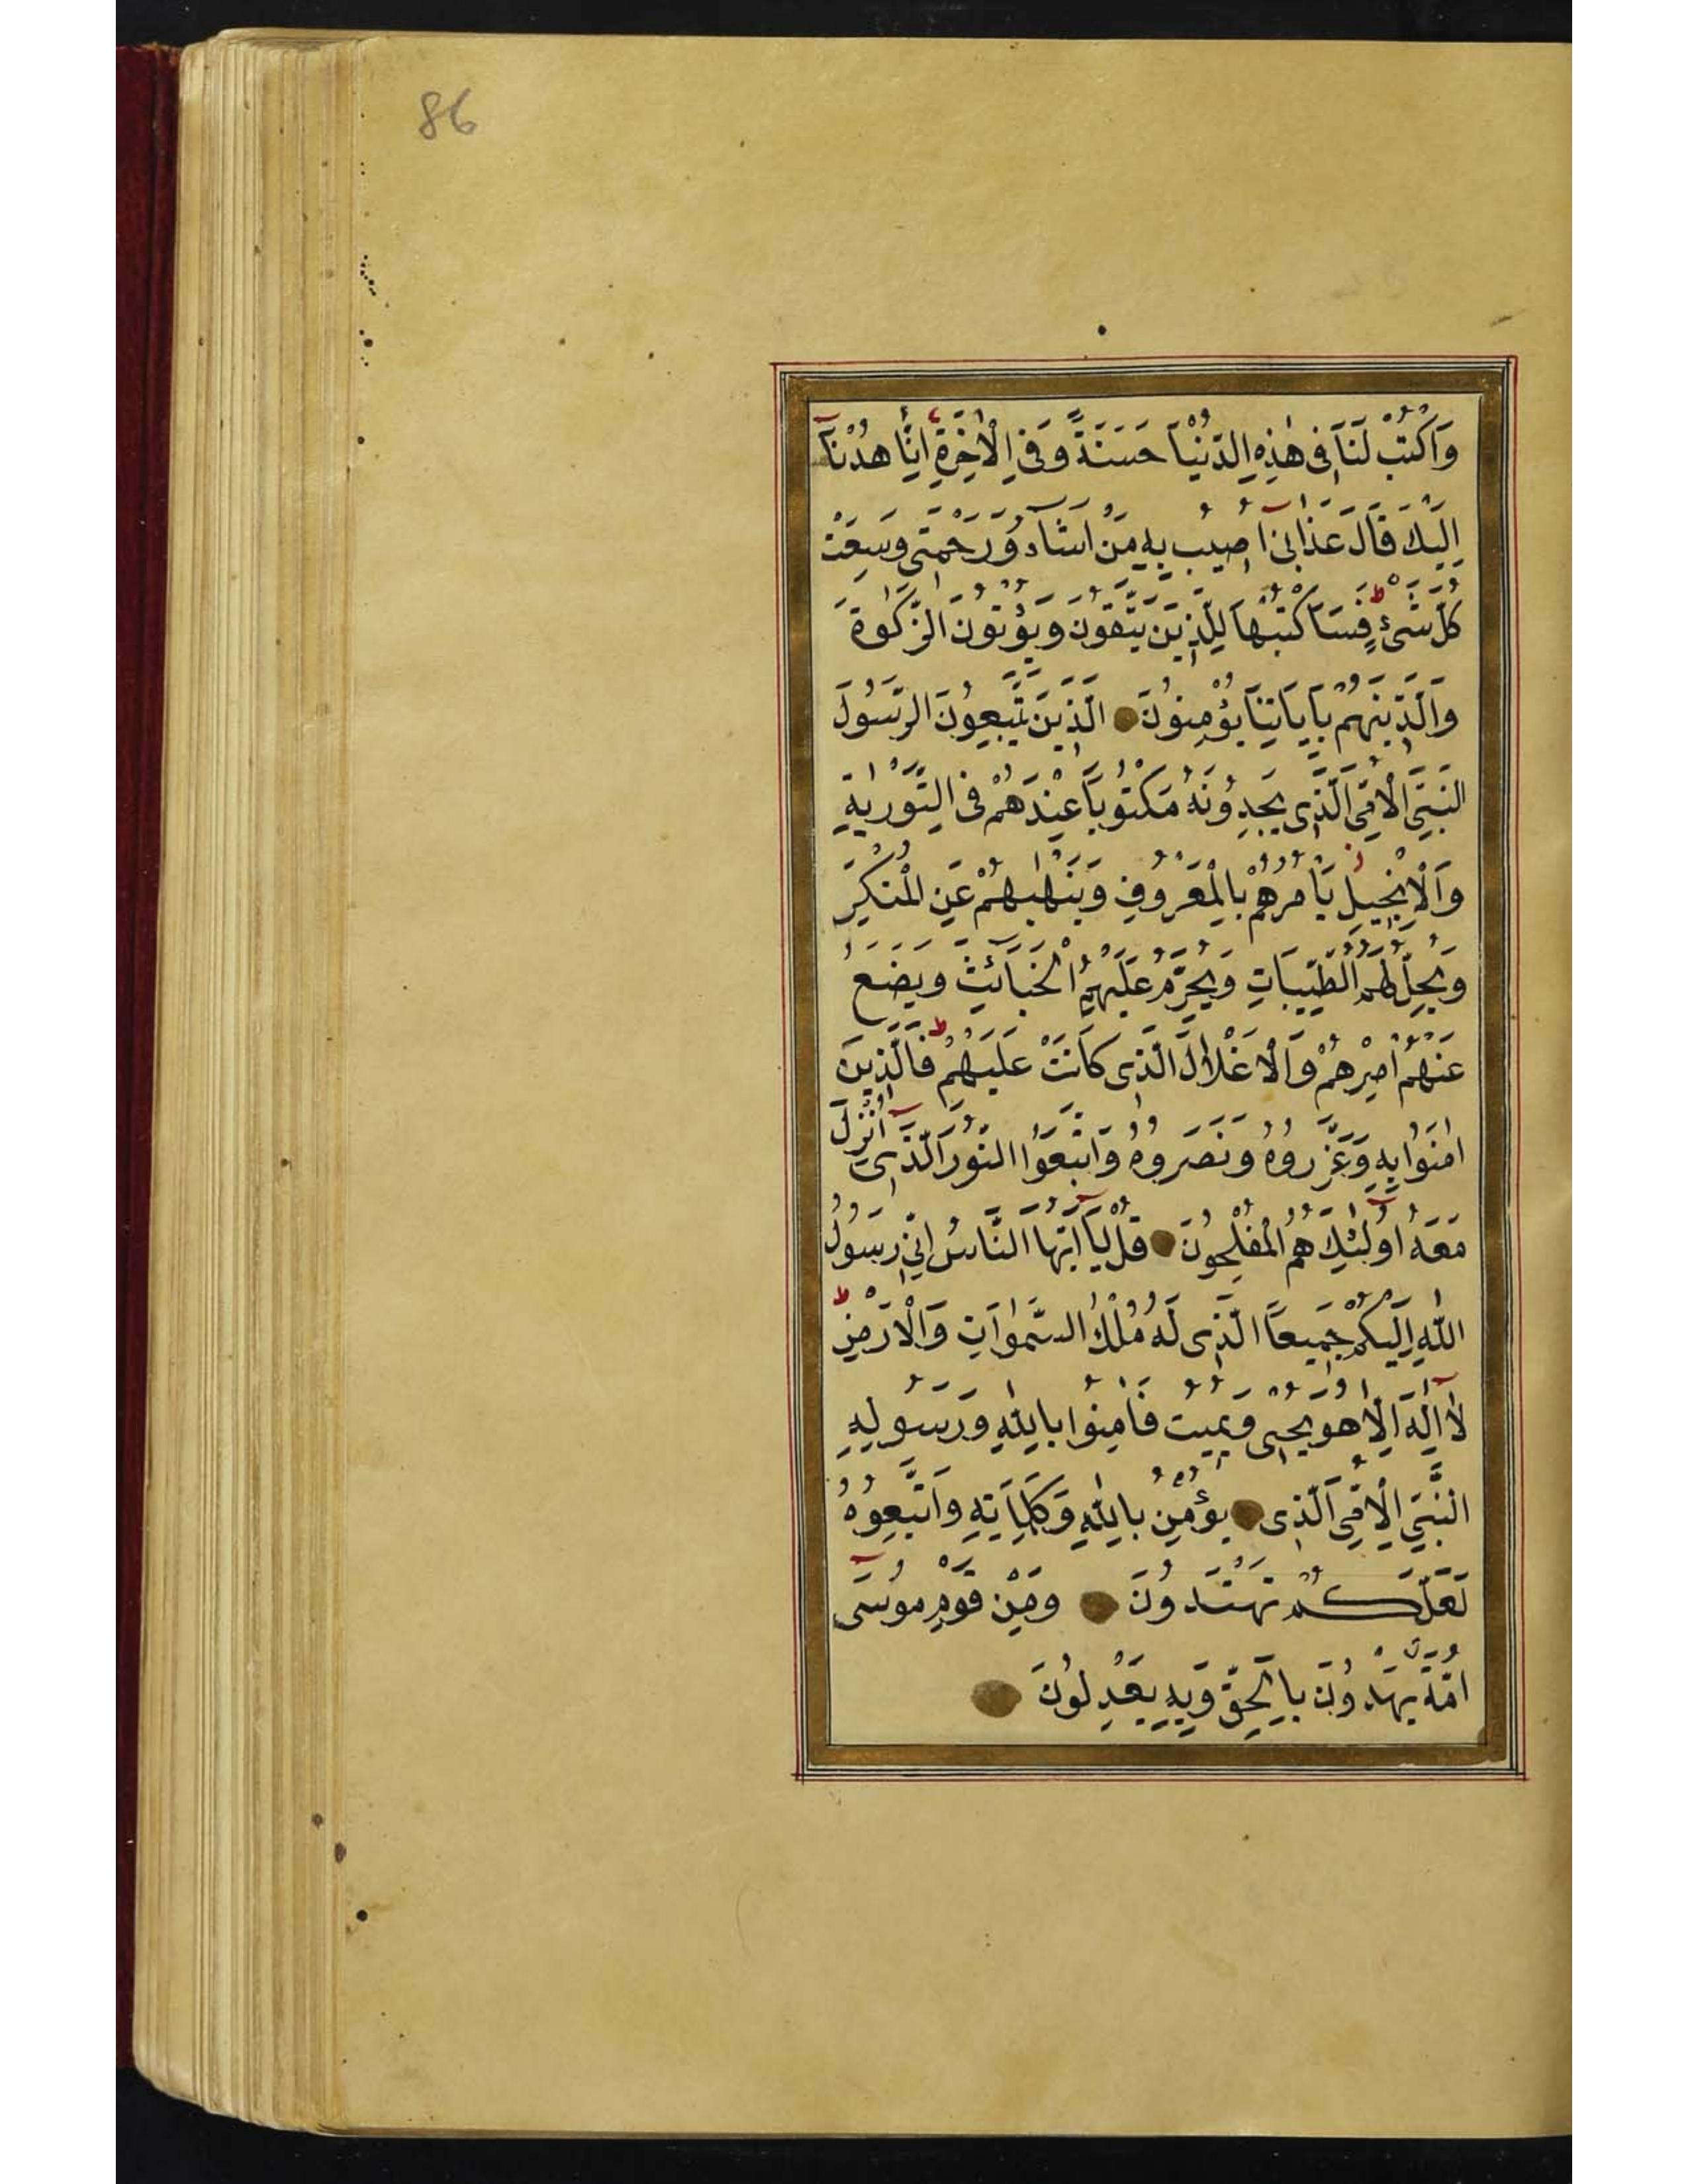 86
وَاكْتُبْ لَنَا فِى هٰذِهِ الدُّنْيَا حَسَنَةً وَفِي الْاٰخِرَةِ اِنَّا هُدْنَآ
اِلَيْكَ قَالَ عَذَابِىٓ اُصِيبُ بِهِ مَنْ اَشَآءُ وَرَحْمَتِى وَسِعَتْ
كُلَّ شَىْءٍ فَسَاَكْتُبُهَا لِلَّذِينَ يَتَّقُونَ وَيُؤْتُونَ الزَّكٰوةَ
وَالَّذِينَهُمْ بِاٰيَاتِنَا يُؤْمِنُونَ اَلَّذِينَ يَتَّبِعُونَ الرَّسُولَ
النَّبِىَّ الْاُمِّىَّ الَّذِى يَجِدُونَهُ مَكْتُوبًا عِنْدَهُمْ فِى التَّوْرٰيةِ
وَالْاِنْجِيلِ يَاْمُرُهُمْ بِالْمَعْرُوفِ وَيَنْهٰيهُمْ عَنِ الْمُنْكَرِ
وَيُحِلُّ لَهُمُ الطَّيِّبَاتِ وَيُحَرِّمُ عَلَيْهِمُ الْخَبَآئِثَ وَيَضَعُ
عَنْهُمْ اِصْرَهُمْ وَالْاَغْلَالَ الَّتِى كَانَتْ عَلَيْهِمْ فَالَّذِينَ
اٰمَنُوا بِهِ وَعَزَّرُوهُ وَنَصَرُوهُ وَاتَّبَعُوا النُّورَ الَّذِىٓ اُنْزِلَ
مَعَهُ اُولٰٓئِكَ هُمُ الْمُفْلِحُونَ قُلْ يَآ اَيُّهَا النَّاسُ اِنِّى رَسُولُ
اللّٰهِ اِلَيْكُمْ جَمِيعًا الَّذِى لَهُ مُلْكُ السَّمٰوَاتِ وَالْاَرْضِ
لَآ اِلٰهَ اِلَّا هُوَ يُحْيِى وَيُمِيتُ فَاٰمِنُوا بِاللّٰهِ وَرَسُولِهِ
النَّبِىِّ الْاُمِّىِّ الَّذِى يُؤْمِنُ بِاللّٰهِ وَكَلِمَاتِهِ وَاتَّبِعُوهُ
لَعَلَّكُمْ تَهْتَدُونَ وَمِنْ قَوْمِ مُوسٰىٓ
اُمَّةٌ يَهْدُونَ بِالْحَقِّ وَبِهِ يَعْدِلُونَ